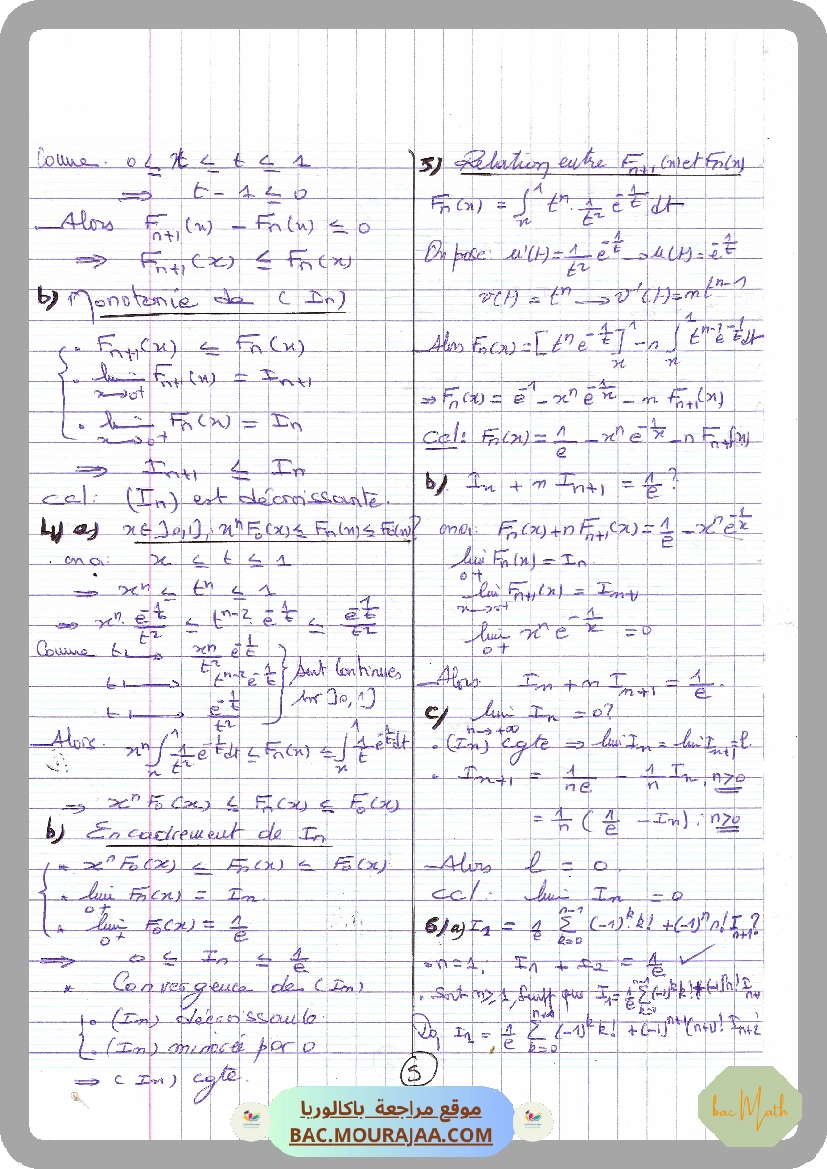 Comme. 0 ≤ x ≤ t ≤ 1
⟹ t - 1 ≤ 0
Alors F_{n+1}(x) - F_n(x) ≤ 0
⟹ F_{n+1}(x) ≤ F_n(x)
b) Monotonie de (In)
• F_{n+1}(x) ≤ F_n(x)
• lim_{x→0+} F_{n+1}(x) = I_{n+1}
• lim_{x→0+} F_n(x) = In
⟹ I_{n+1} ≤ In
ccl: (In) est décroissante.
4) a) x∈]0,1]; x^n F_0(x) ≤ F_n(x) ≤ F_0(x)?
on a: x ≤ t ≤ 1
⟹ x^n ≤ t^n ≤ 1
⟹ x^n · e^{-1/t}/t² ≤ t^{n-2} · e^{-1/t} ≤ e^{-1/t}/t²
Comme t ⟼ x^n/t² e^{-1/t}
t ⟼ t^{n-2} e^{-1/t} } sont continues
t ⟼ e^{-1/t}/t² sur ]0,1]
Alors. x^n ∫_x^1 1/t² e^{-1/t} dt ≤ F_n(x) ≤ ∫_x^1 1/t e^{-1/t} dt
⟹ x^n F_0(x) ≤ F_n(x) ≤ F_0(x)
b) Encadrement de In
* x^n F_0(x) ≤ F_n(x) ≤ F_0(x)
* lim_{0+} F_n(x) = In
* lim_{0+} F_0(x) = 1/e
⟹ 0 ≤ In ≤ 1/e
* Convergence de (In)
• (In) décroissante
• (In) minorée par 0
⟹ (In) cgte.
5) Relation entre F_{n+1}(x) et F_n(x)
F_n(x) = ∫_x^1 t^n · 1/t² e^{-1/t} dt
On pose: u'(t) = 1/t² e^{-1/t} → u(t) = e^{-1/t}
v(t) = t^n ⟶ v'(t) = n t^{n-1}
Alors F_n(x) = [t^n e^{-1/t}]_x^1 - n ∫_x^1 t^{n-1} e^{-1/t} dt
⟹ F_n(x) = e^{-1} - x^n e^{-1/x} - n F_{n+1}(x)
ccl: F_n(x) = 1/e - x^n e^{-1/x} - n F_{n+1}(x)
b) In + n I_{n+1} = 1/e ?
on a: F_n(x) + n F_{n+1}(x) = 1/e - x^n e^{-1/x}
lim_{0+} F_n(x) = In
lim_{x→0+} F_{n+1}(x) = I_{n+1}
lim_{0+} x^n e^{-1/x} = 0
Alors In + n I_{n+1} = 1/e.
c) lim_{n→+∞} In = 0?
• (In) cgte ⟹ lim In = lim I_{n+1} = l.
• I_{n+1} = 1/ne - 1/n In, n>0
= 1/n (1/e - In); n>0
Alors l = 0.
ccl: lim In = 0
6/a) I_1 = 1/e Σ_{k=0}^{n-1} (-1)^k k! + (-1)^n n! I_{n+1}?
• n=1; I_1 + I_2 = 1/e ✓
• Soit n≥1, Supp que I_1 = 1/e Σ_{k=0}^{n-1} (-1)^k k! + (-1)^n n! I_{n+1}
Dq I_1 = 1/e Σ_{k=0}^{n} (-1)^k k! + (-1)^{n+1} (n+1)! I_{n+2}
5
موقع مراجعة باكالوريا
BAC.MOURAJAA.COM
bac Math